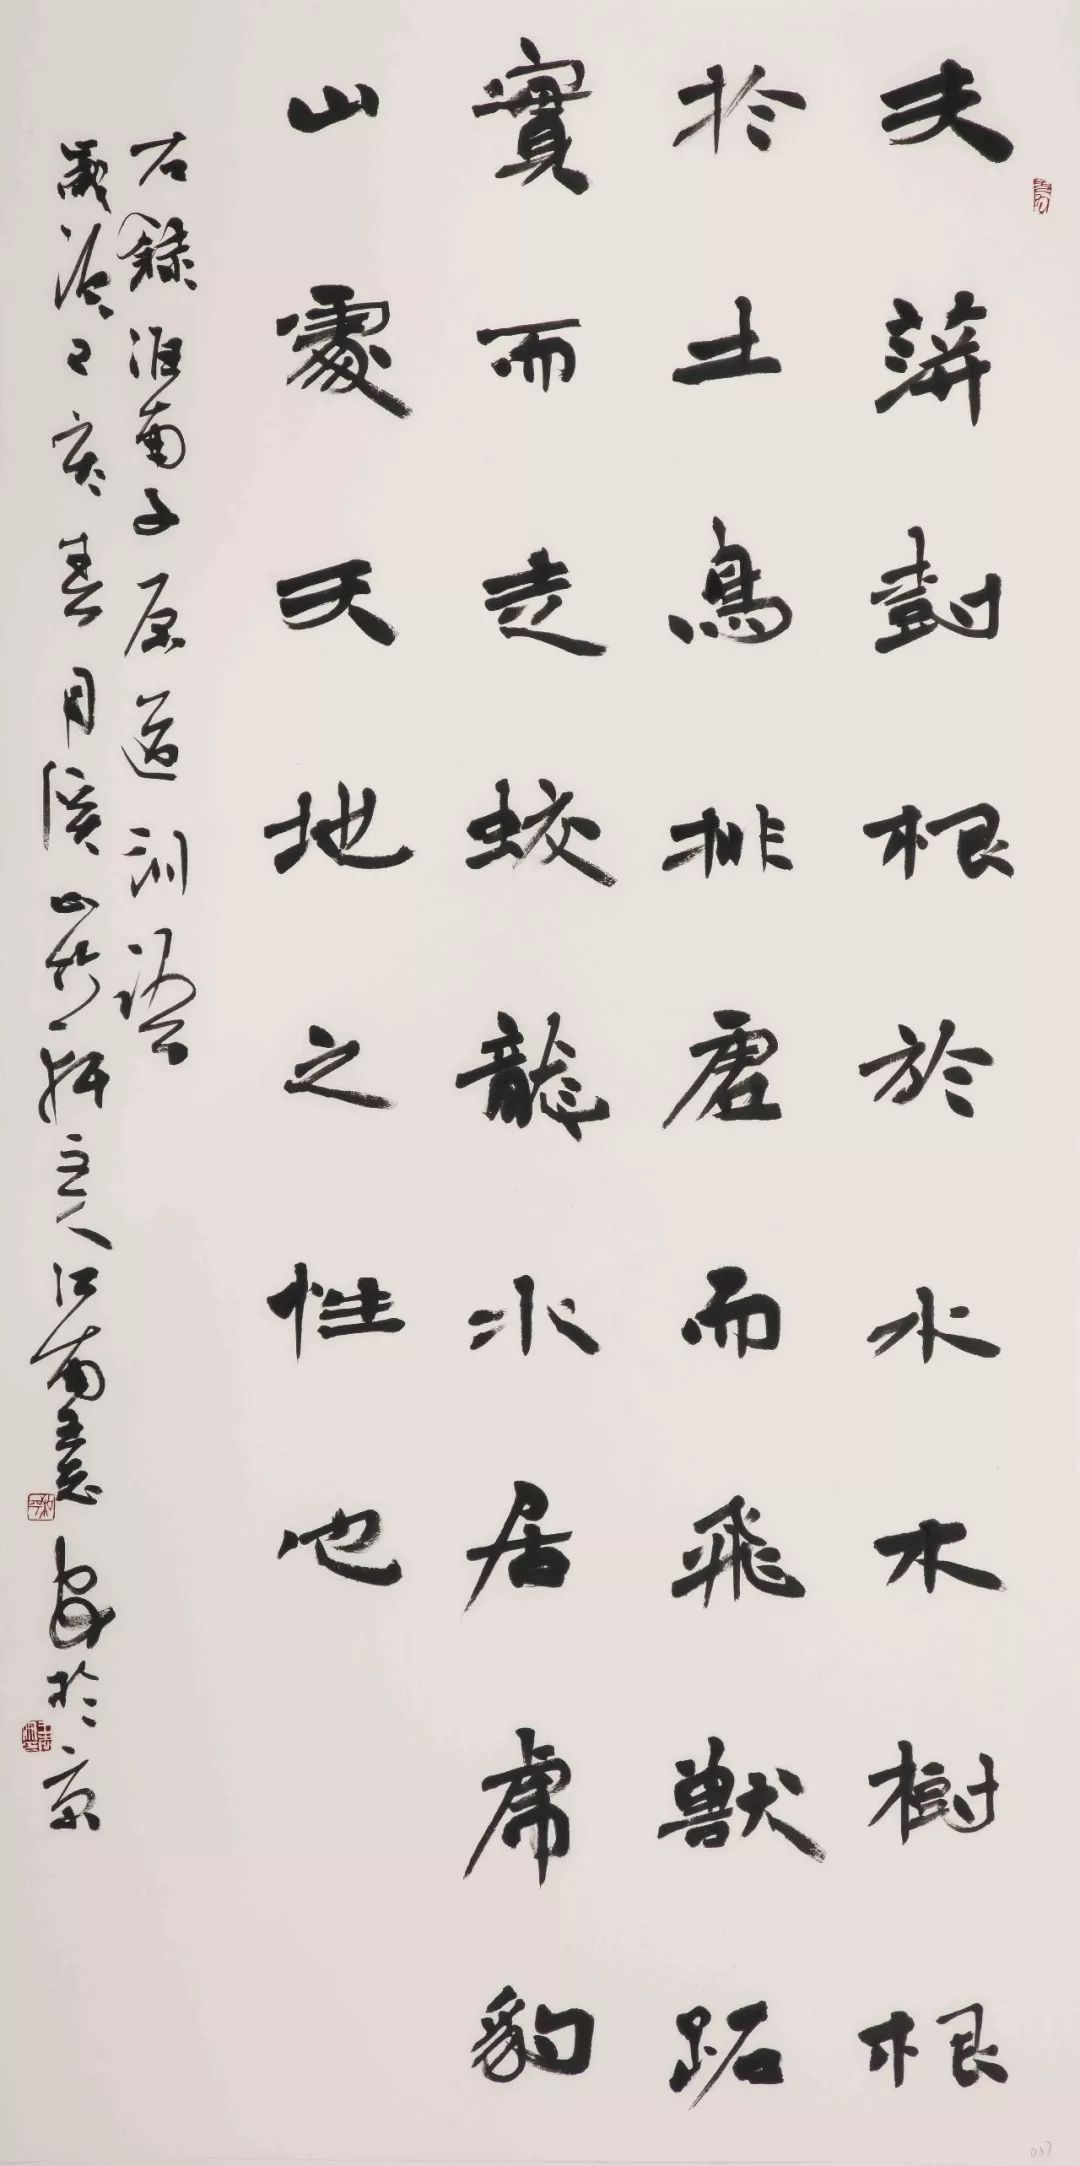 夫蓱尌根於水木樹根
於土鳥排虛而飛獸跖
實而走蛟龍水居虎豹
山處天地之性也
右錄淮南子原道訓語
歲次己亥春月溪山竹軒主人江南王於京
057